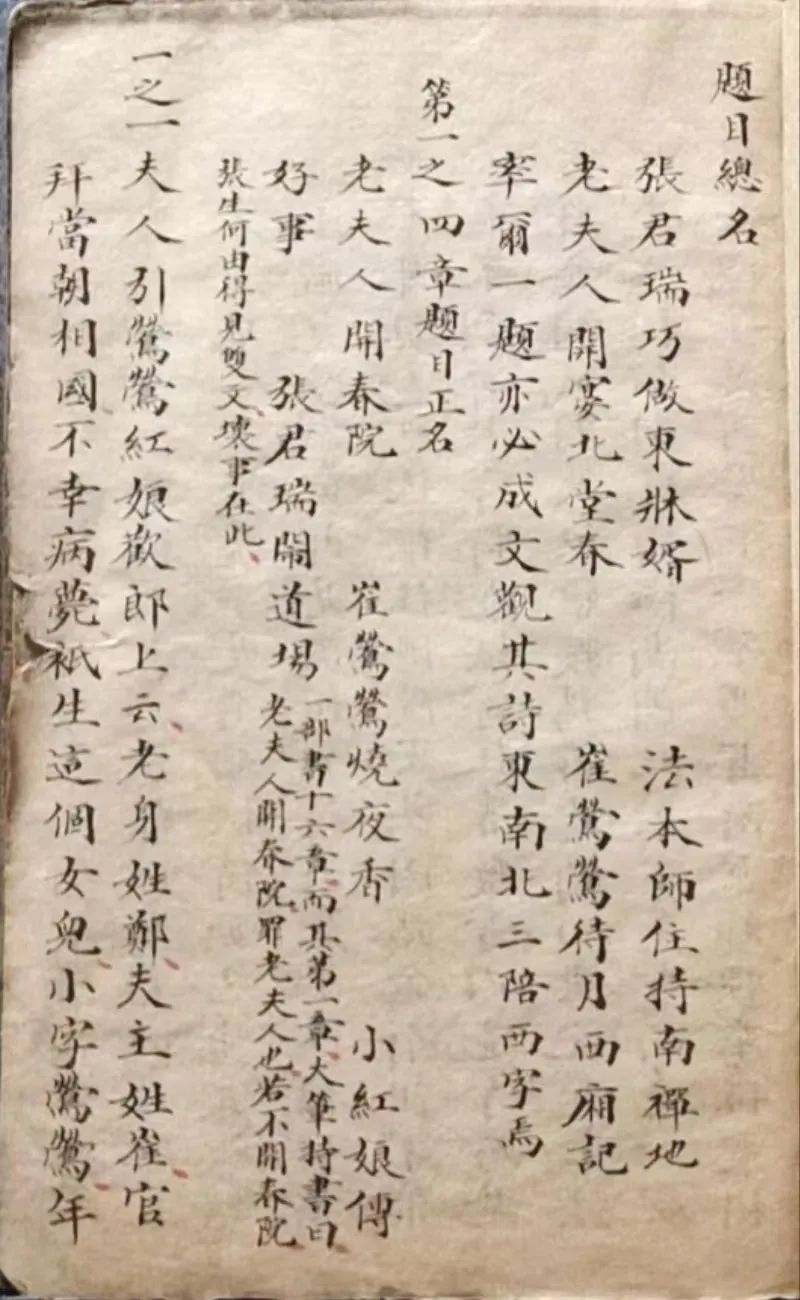 題目總名
張君瑞巧做東牀婿　法本師住持南禪地
老夫人開宴北堂春　崔鶯鶯待月西廂記
率爾一題亦必成文觀其詩東南北三陪西字焉
第一之四章題目正名
老夫人開春院　崔鶯鶯燒夜香　小紅娘傳
好事　張君瑞鬧道場
一部書十六章而其第一章大筆特書曰
老夫人開春院罪老夫人也若不開春院
張生何由得見雙文壞事在此
一之一夫人引鶯鶯紅娘歡郎上云老身姓鄭夫主姓崔官
拜當朝相國不幸病薨祗生這個女兒小字鶯鶯年